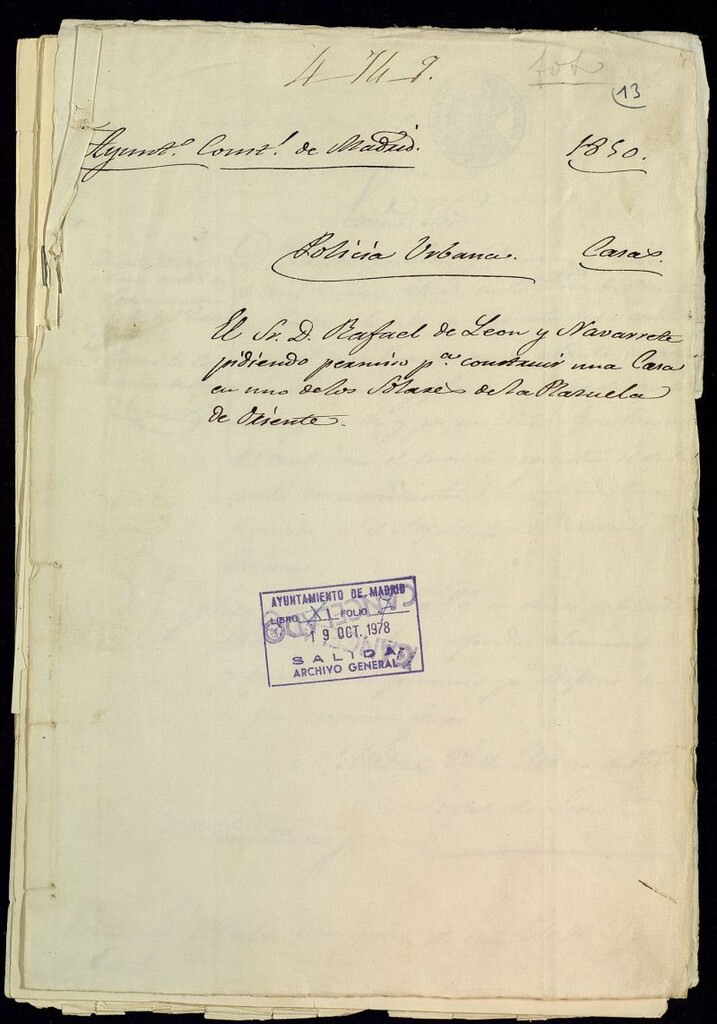 4 74 9.
fol
13
Ayunto. Const.l de Madrid.
1850.
Policia Urbana. Casas.
El Sr. D. Rafael de Leon y Navarrete
pidiendo permiso pa. construir una Casa
en uno de los Solares de la Plazuela
de Oriente.
AYUNTAMIENTO DE MADRID
LIBRO FOLIO
19 OCT. 1978
SALIDA
ARCHIVO GENERAL
CANCELADO